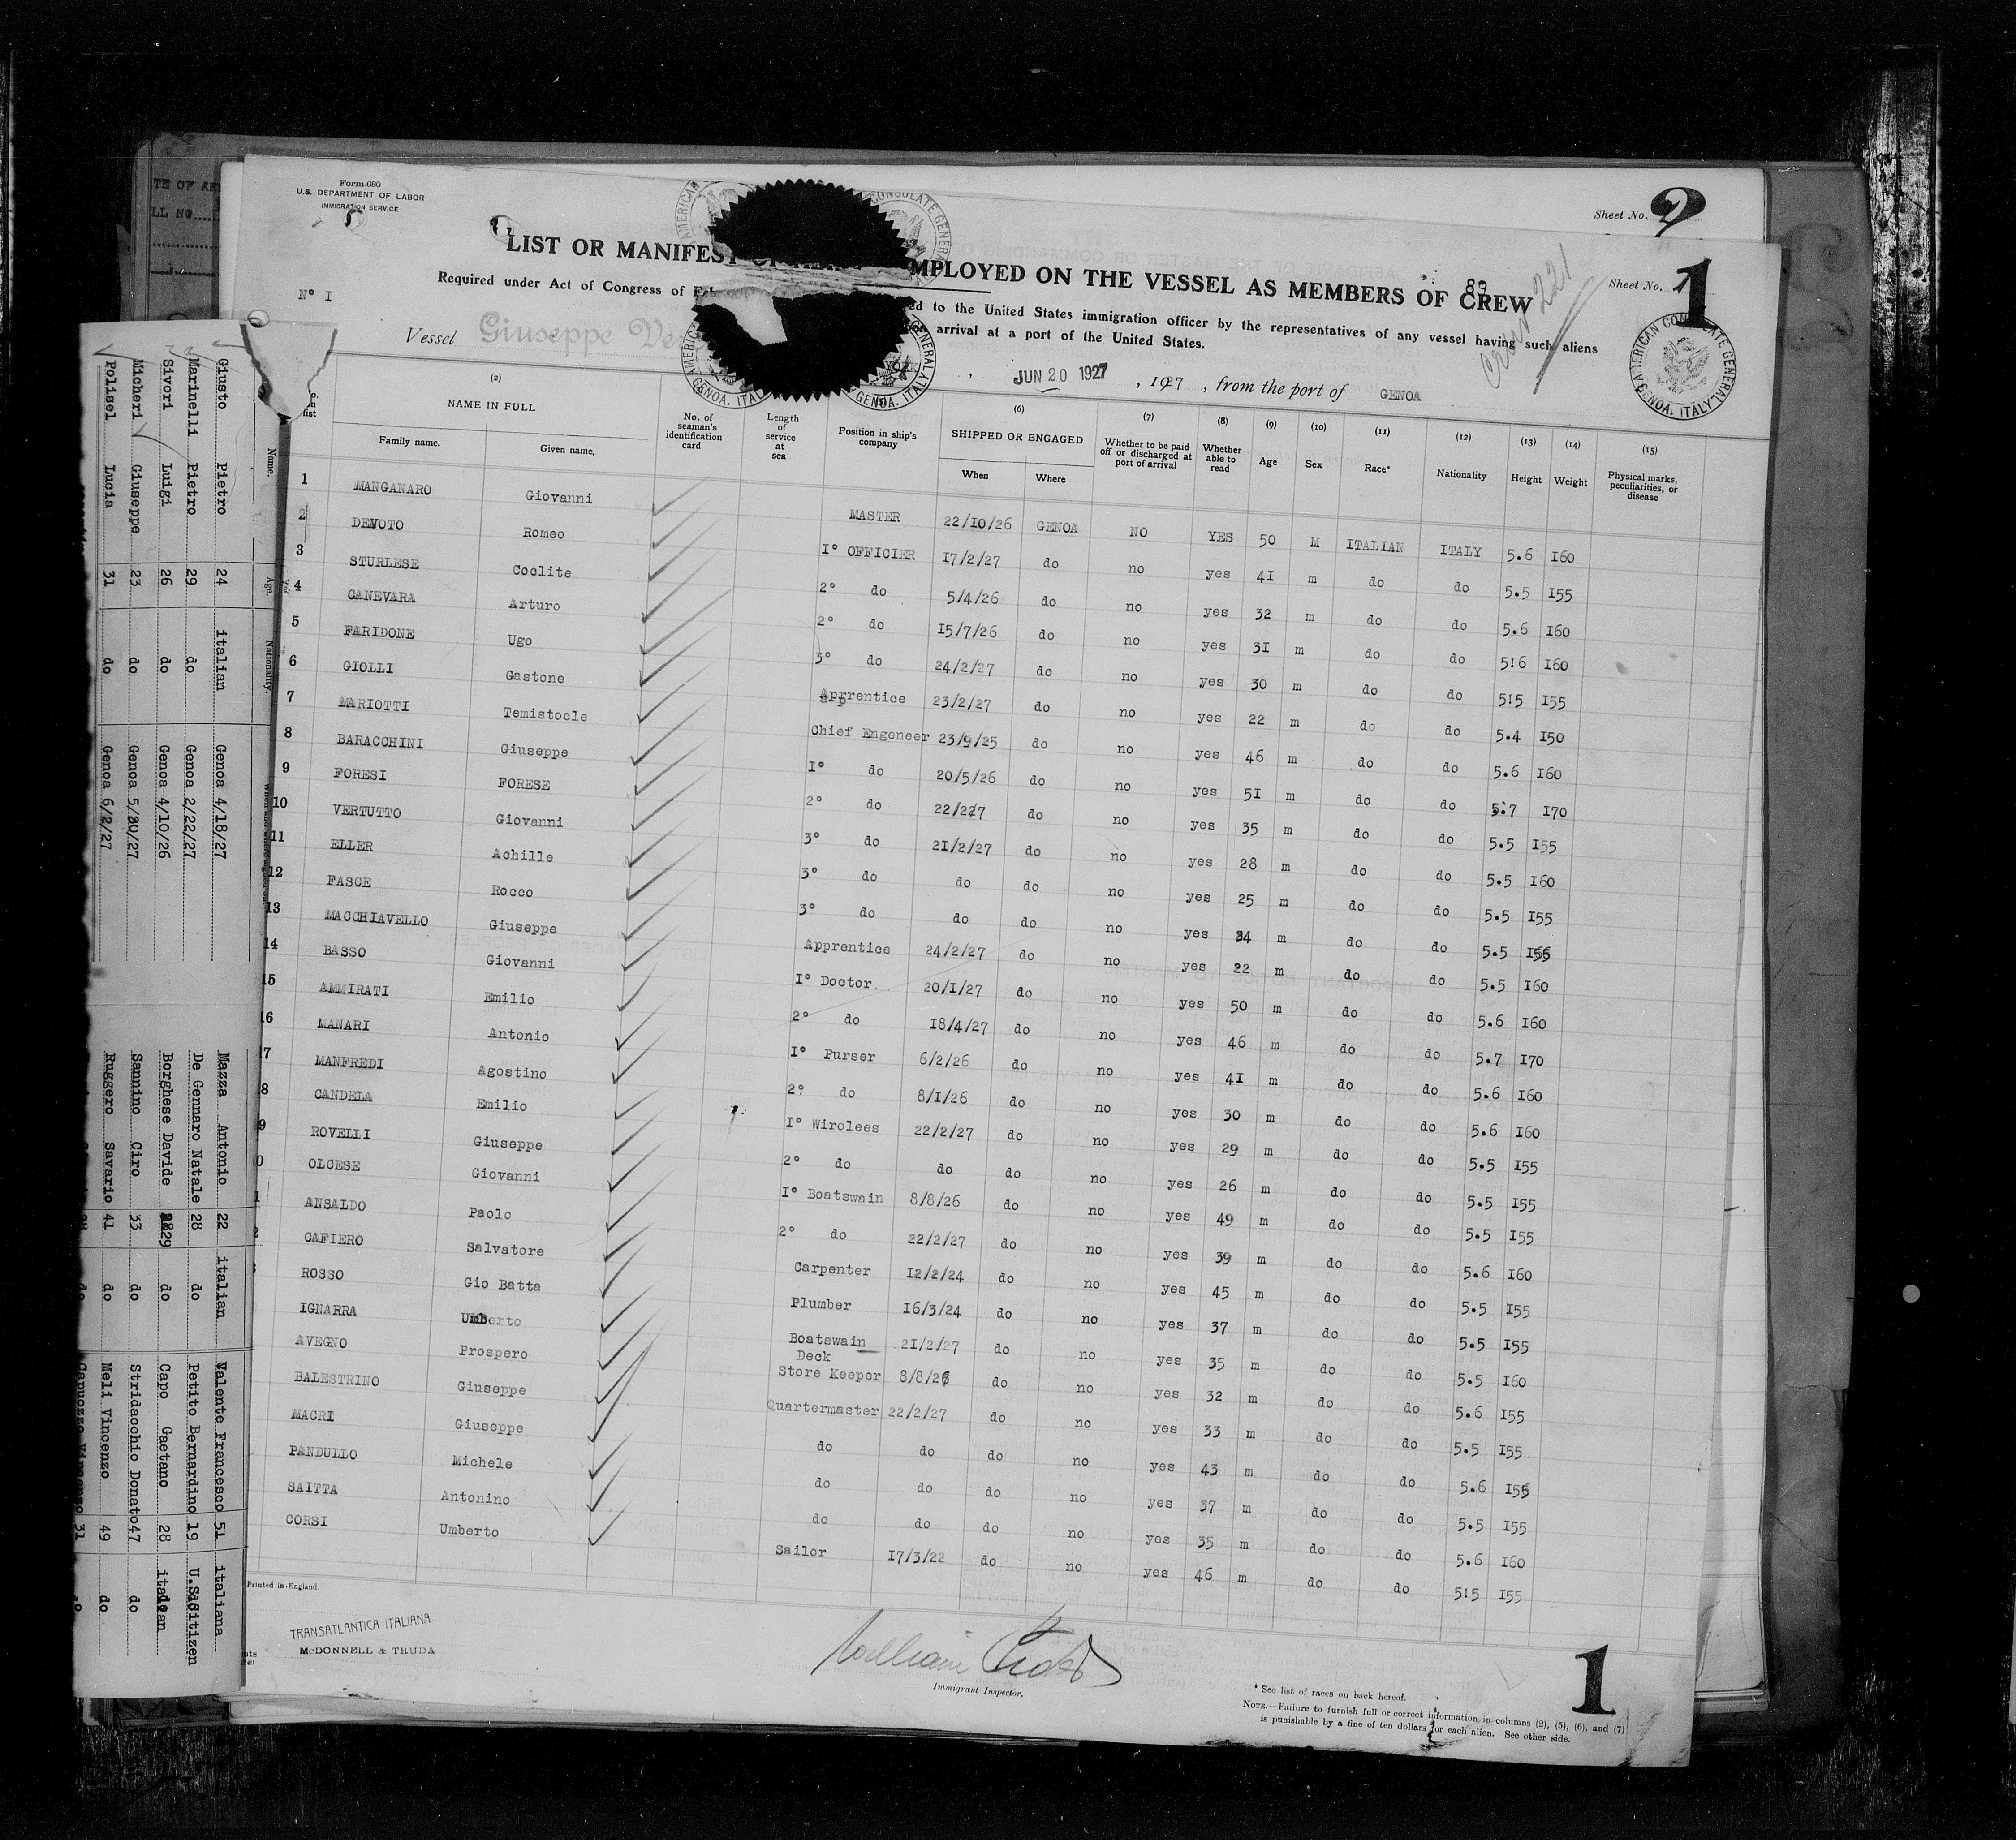 Form 680
U.S. DEPARTMENT OF LABOR
IMMIGRATION SERVICE
5
Sheet No. 2
LIST OR MANIFEST EMPLOYED ON THE VESSEL AS MEMBERS OF CREW
89
Crew 221
Sheet No. 1
Nº I
Required under Act of Congress of to the United States immigration officer by the representatives of any vessel having such aliens
arrival at a port of the United States.
AMERICAN CONSULATE GENERAL GENOA. ITALY
Vessel Giuseppe JUN 20 1927, 1927, from the port of GENOA
(2) (6) (7) (8) (9) (10) (11) (12) (13) (14) (15)
NAME IN FULL
Family name. Given name. No. of seaman's identification card Length of service at sea Position in ship's company SHIPPED OR ENGAGED When Where Whether to be paid off or discharged at port of arrival Whether able to read Age Sex Race* Nationality Height Weight Physical marks, peculiarities, or disease
1 MANGANARO Giovanni MASTER 22/10/26 GENOA NO YES 50 M ITALIAN ITALY 5.6 I60
2 DEVOTO Romeo I° OFFICIER 17/2/27 do no yes 41 m do do 5.5 I55
3 STURLESE Coclite 2° do 5/4/26 do no yes 32 m do do 5.6 I60
4 CANEVARA Arturo 2° do 15/7/26 do no yes 31 m do do 5!6 I60
5 FARIDONE Ugo 3° do 24/2/27 do no yes 30 m do do 5!5 I55
6 GIOLLI Gastone Apprentice 23/2/27 do no yes 22 m do do 5.4 I50
7 MARIOTTI Temistocle Chief Engeneer 23/9/25 do no yes 46 m do do 5.6 I60
8 BARACCHINI Giuseppe I° do 20/5/26 do no yes 51 m do do 5.7 I70
9 FORESI FORESE 2° do 22/227 do no yes 35 m do do 5.5 I55
10 VERTUTTO Giovanni 3° do 21/2/27 do no yes 28 m do do 5.5 I60
11 ELLER Achille 3° do do do no yes 25 m do do 5.5 I55
12 FASCE Rocco 3° do do do no yes 34 m do do 5.5 I55
13 MACCHIAVELLO Giuseppe Apprentice 24/2/27 do no yes 22 m do do 5.5 I60
14 BASSO Giovanni I° Doctor 20/I/27 do no yes 50 m do do 5.6 I60
15 AMMIRATI Emilio 2° do 18/4/27 do no yes 46 m do do 5.7 I70
16 MANARI Antonio I° Purser 6/2/26 do no yes 41 m do do 5.6 I60
7 MANFREDI Agostino 2° do 8/I/26 do no yes 30 m do do 5.6 I60
8 CANDELA Emilio I° Wirolees 22/2/27 do no yes 29 m do do 5.5 I55
9 ROVELLI Giuseppe 2° do do do no yes 26 m do do 5.5 I55
0 OLCESE Giovanni I° Boatswain 8/8/26 do no yes 49 m do do 5.5 I55
1 ANSALDO Paolo 2° do 22/2/27 do no yes 39 m do do 5.6 I60
CAFIERO Salvatore Carpenter 12/2/24 do no yes 45 m do do 5.5 I55
ROSSO Gio Batta Plumber 16/3/24 do no yes 37 m do do 5.5 I55
IGNARRA Umberto Boatswain 21/2/27 do no yes 35 m do do 5.5 I60
AVEGNO Prospero Deck Store Keeper 8/8/26 do no yes 32 m do do 5.6 I55
BALESTRINO Giuseppe Quartermaster 22/2/27 do no yes 33 m do do 5.5 I55
MACRI Giuseppe do do do no yes 43 m do do 5.6 I55
PANDULLO Michele do do do no yes 37 m do do 5.5 I55
SAITTA Antonino do do do no yes 35 m do do 5.6 I60
CORSI Umberto Sailor 17/3/22 do no yes 46 m do do 5!5 I55
Printed in England.
TRANSATLANTICA ITALIANA
McDONNELL & TRUDA
Immigrant Inspector.
* See list of races on back hereof.
NOTE.—Failure to furnish full or correct information in columns (2), (5), (6), and (7)
is punishable by a fine of ten dollars for each alien. See other side.
1
Name. Age. Nationality.
Giusto Pietro 24 italian Genoa 4/18/27
Marinelli Pietro 29 do Genoa 2/22/27
Sivori Luigi 26 do Genoa 4/10/26
Micheri Giuseppe 23 do Genoa 5/30/27
Polisel Lucia 31 do Genoa 6/2/27
Mazza Antonio 22 italian Valente Francesco 51 italiana
De Gennaro Natale 28 do Petito Bernardino 19 U.S.Citizen
Borghese Davide 29 do Capo Gaetano 28 italian
Sannino Ciro 33 do Stridacchio Donato 47 do
Ruggero Savario 41 do Meli Vincenzo 49 do
Capuozzo Vincenzo 31